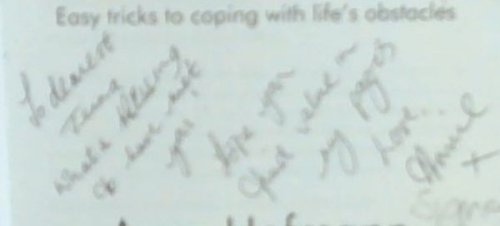 Easy tricks to coping with life's obstacles
To dearest
What a blessing
to have met
you
Hope you
find value in
my pages
Love...